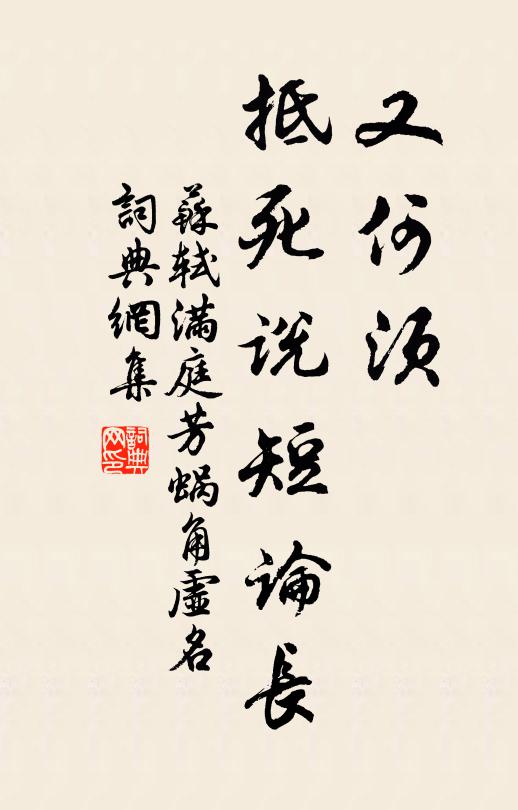 又何須
抵死説短論長
蘇軾滿庭芳蝸角虛名
詞典網集
詞典
网印